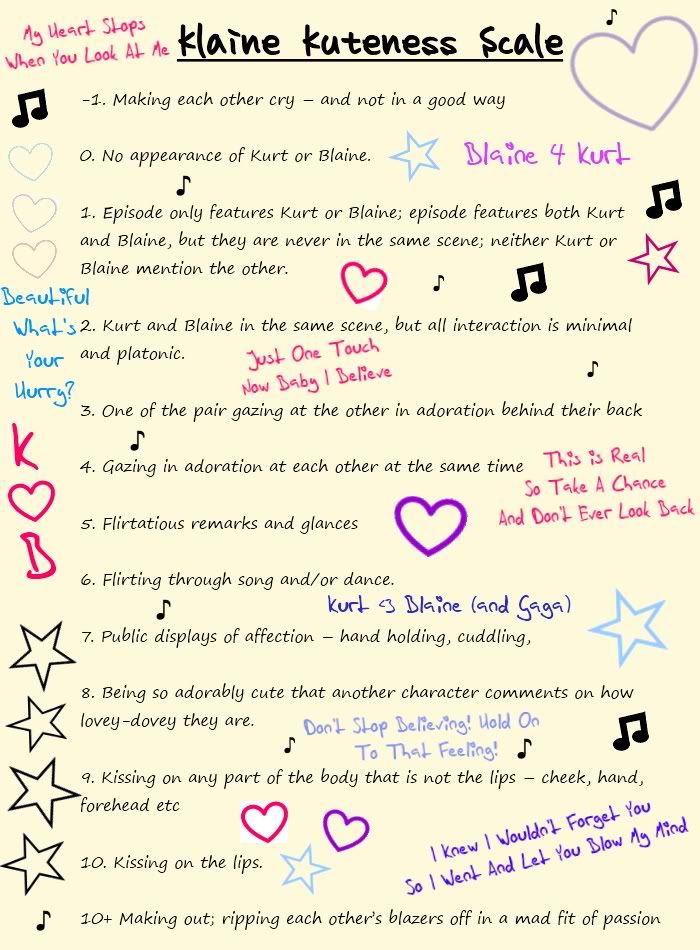 My Heart Stops
When You Look At Me
Klaine Kuteness Scale
-1. Making each other cry – and not in a good way
0. No appearance of Kurt or Blaine.
Blaine 4 Kurt
1. Episode only features Kurt or Blaine; episode features both Kurt
and Blaine, but they are never in the same scene; neither Kurt or
Blaine mention the other.
Beautiful
What's
Your
Hurry?
2. Kurt and Blaine in the same scene, but all interaction is minimal
and platonic.
Just One Touch
Now Baby I Believe
3. One of the pair gazing at the other in adoration behind their back
K
B
4. Gazing in adoration at each other at the same time
This is Real
So Take A Chance
And Don't Ever Look Back
5. Flirtatious remarks and glances
6. Flirting through song and/or dance.
Kurt <3 Blaine (and Gaga)
7. Public displays of affection – hand holding, cuddling,
8. Being so adorably cute that another character comments on how
lovey-dovey they are.
Don't Stop Believing! Hold On
To That Feeling!
9. Kissing on any part of the body that is not the lips – cheek, hand,
forehead etc
I Knew I Wouldn't Forget You
So I Went And Let You Blow My Mind
10. Kissing on the lips.
10+ Making out; ripping each other's blazers off in a mad fit of passion